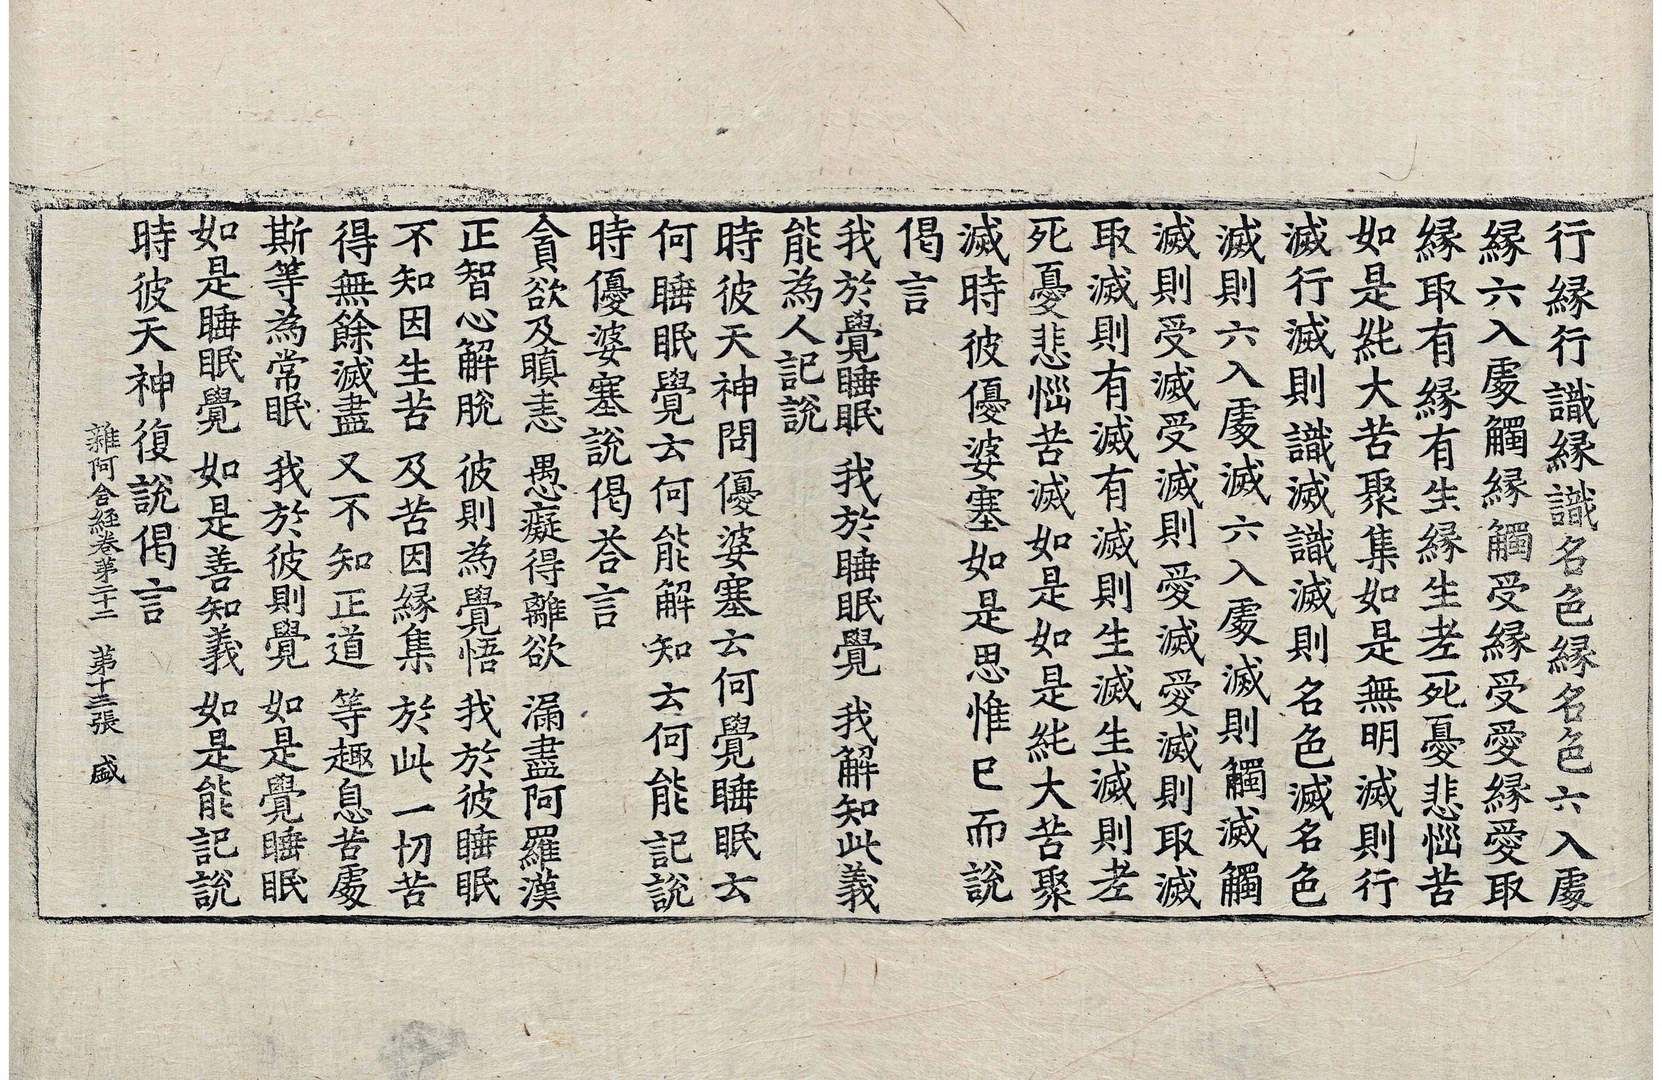 行縁行識縁識名色縁名色六入䖏
縁六入䖏觸縁觸受縁受愛縁愛取
縁取有縁有生縁生老死憂悲惱苦
如是純大苦聚集如是無明滅則行
滅行滅則識滅識滅則名色滅名色
滅則六入䖏滅六入䖏滅則觸滅觸
滅則受滅受滅則愛滅愛滅則取滅
取滅則有滅有滅則生滅生滅則老
死憂悲惱苦滅如是如是純大苦聚
滅時彼優婆塞如是思惟已而說
偈言
我於覺睡眠　我於睡眠覺　我解知此義
能為人記說
時彼天神問優婆塞云何覺睡眠云
何睡眠覺云何能解知云何能記說
時優婆塞說偈荅言
貪欲及瞋恚　愚癡得離欲　漏盡阿羅漢
正智心解脫　彼則為覺悟　我於彼睡眠
不知因生苦　及苦因縁集　於此一切苦
得無餘滅盡　又不知正道　等趣息苦䖏
斯等為常眠　我於彼則覺　如是覺睡眠
如是睡眠覺　如是善知義　如是能記說
時彼天神復說偈言
雜阿含經卷第二十二　第十三張　盛